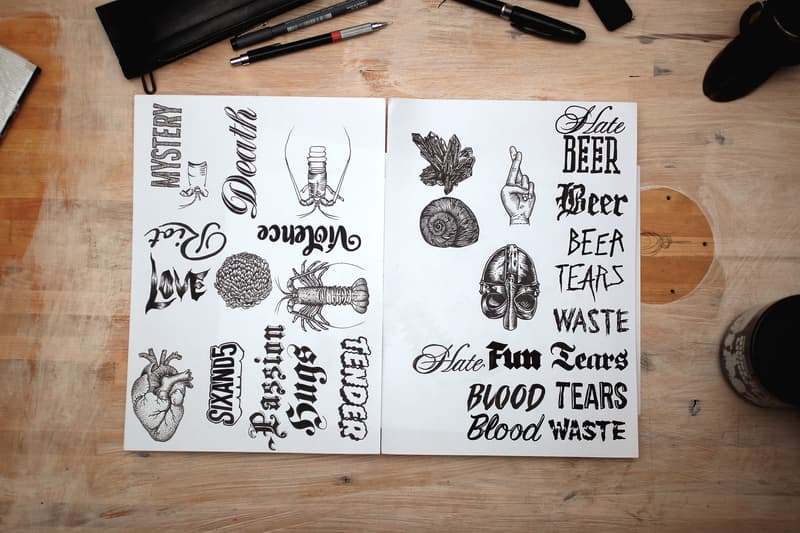 MYSTERY
Death
Riot
Violence
Love
SIXAND5
Passion
Hugs
TENDER
Hate
BEER
Beer
BEER
TEARS
WASTE
Hate Fun Tears
BLOOD TEARS
Blood WASTE